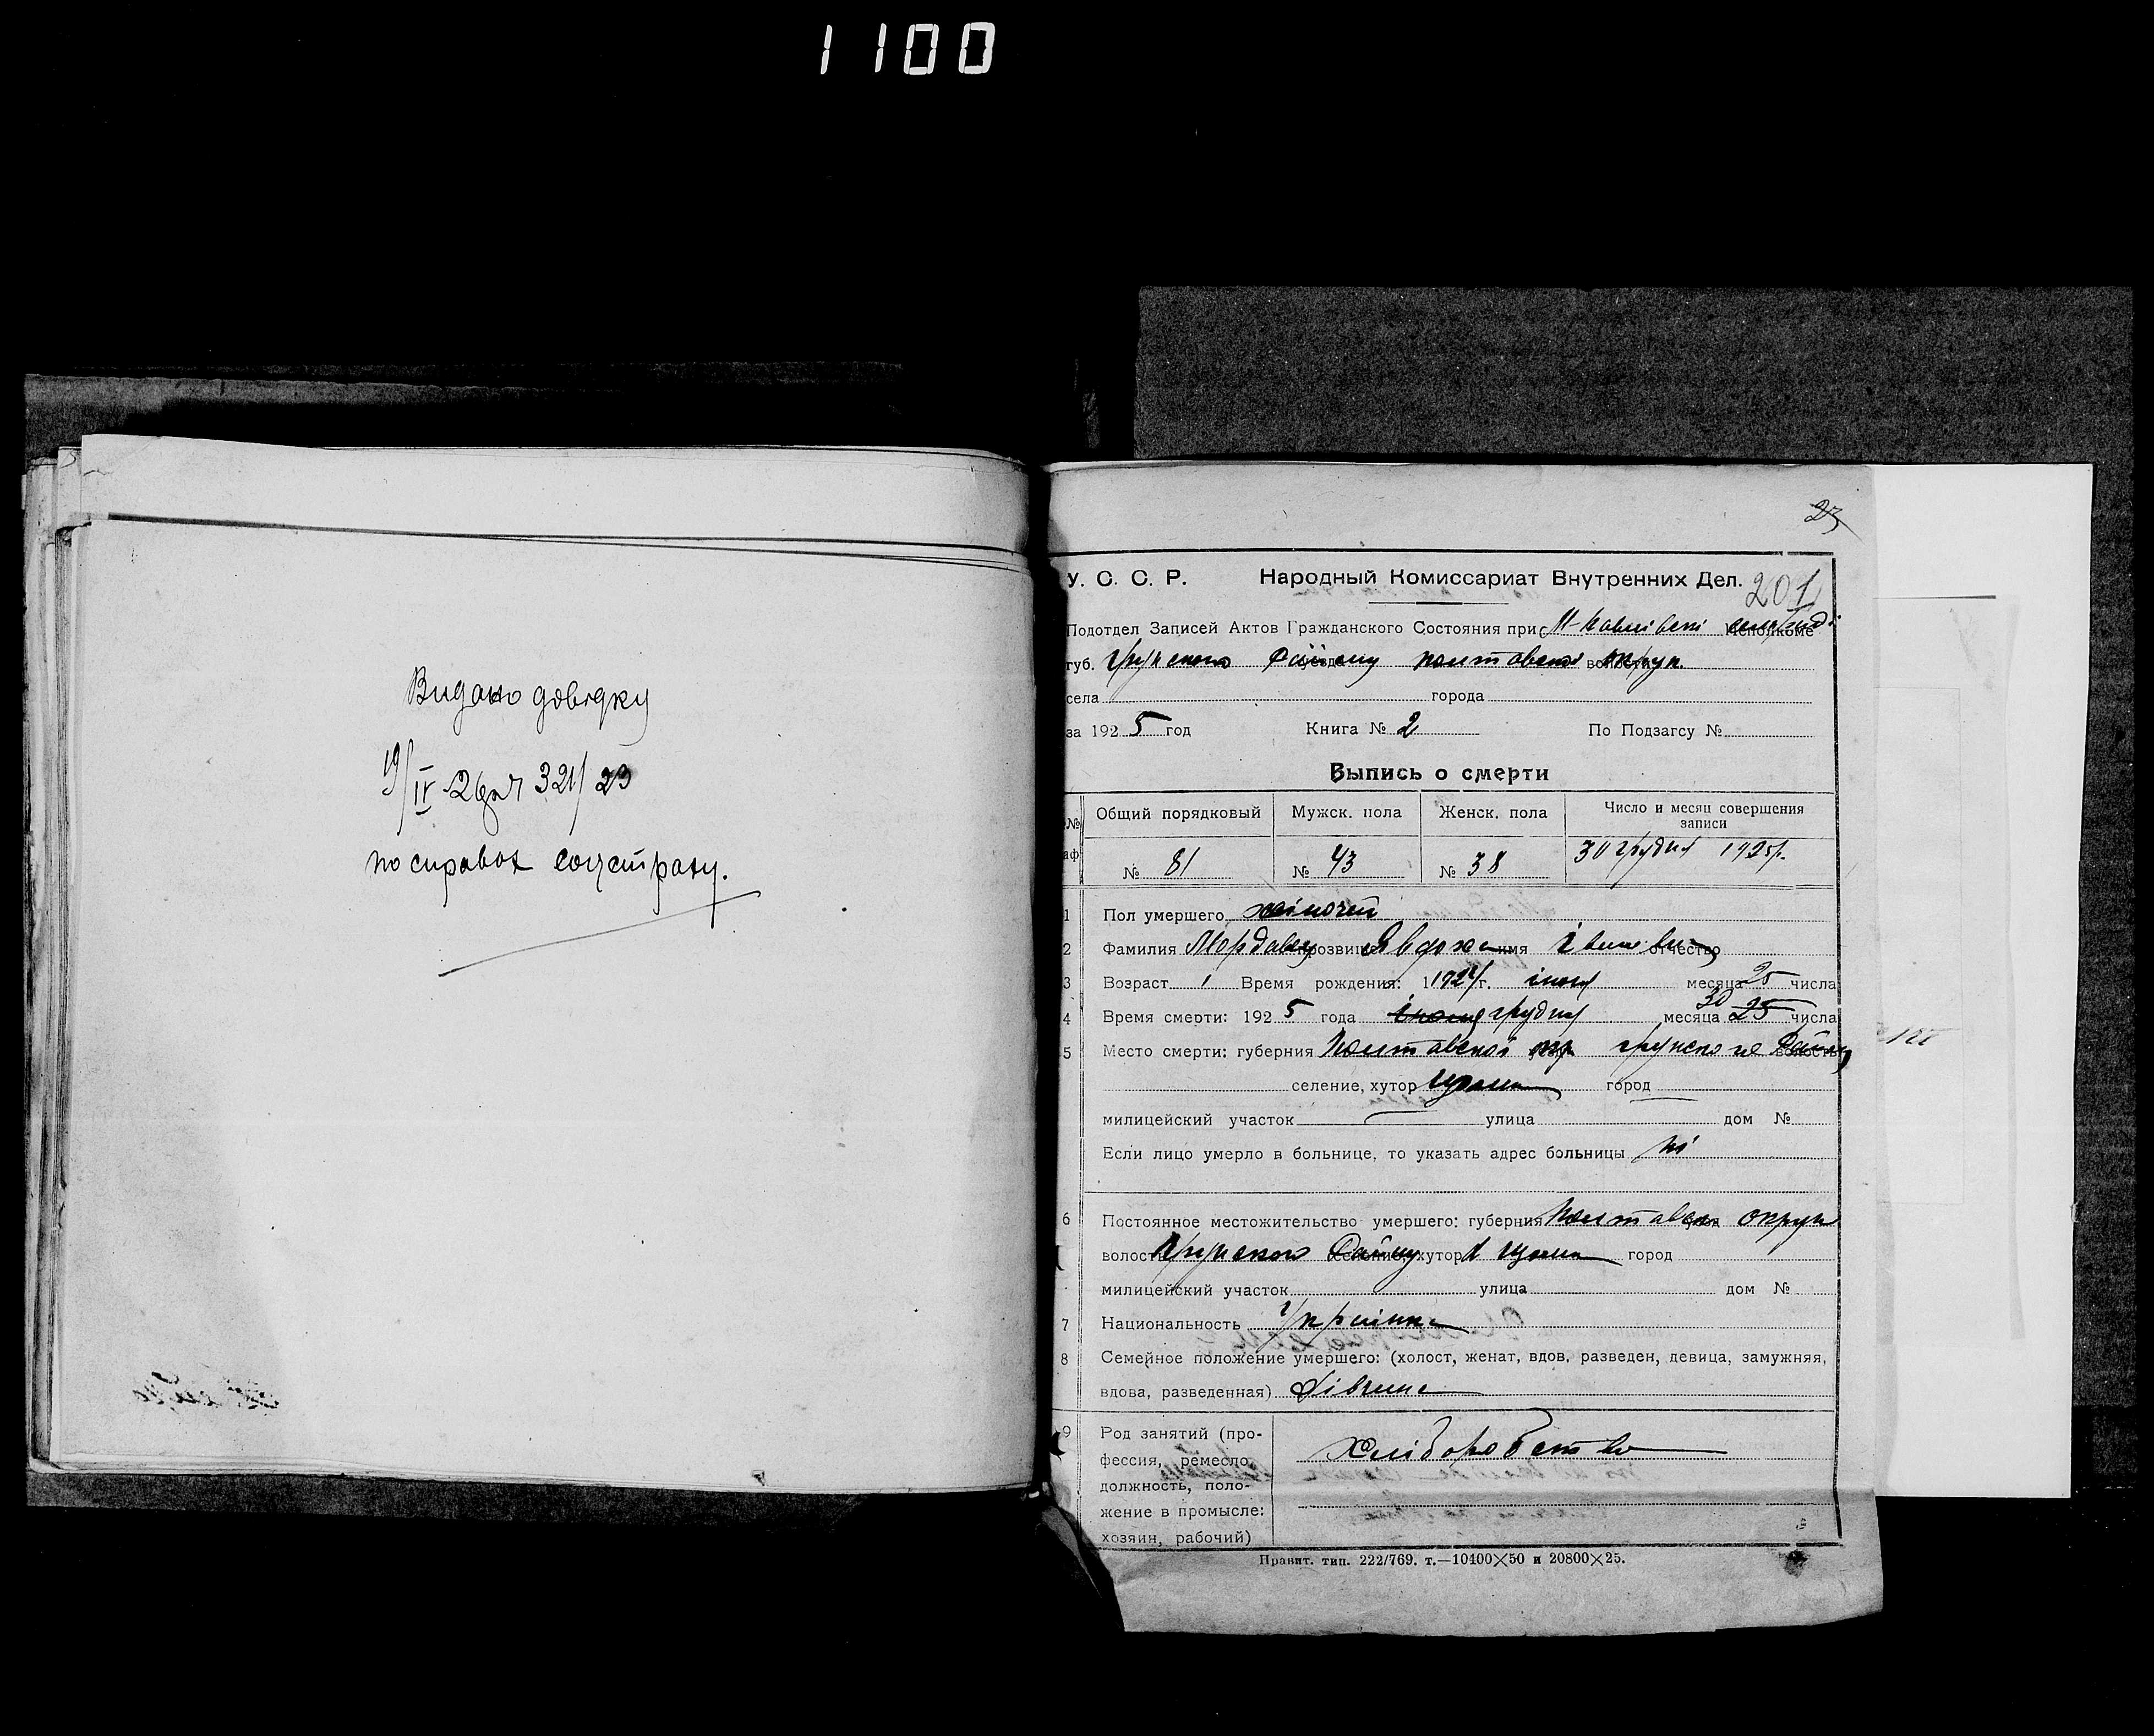 1100
Видано довідку
19/IV 26 р. ч 321/23
по справах соцстраху.
23
У. С. С. Р. Народный Комиссариат Внутренних Дел.
201
Подотдел Записей Актов Гражданского Состояния при Исполкоме
губ. Грунського Району Полтавської округи
села города
за 1925 год Книга № 2 По Подзагсу №
Выпись о смерти
№ Общий порядковый Мужск. пола Женск. пола Число и месяц совершения записи
№ 81 № 43 № 38 30 грудня 1925 р.
1 Пол умершего жіночей
2 Фамилия прозвище Явдоха имя Іванівна отчество
3 Возраст 1 Время рождения: 1924 г. месяца 25 числа
4 Время смерти: 1925 года грудня месяца 30 25 числа
5 Место смерти: губерния Полтавської окр. грунського Району
селение, хутор город
милицейский участок улица дом №
Если лицо умерло в больнице, то указать адрес больницы ні
6 Постоянное местожительство умершего: губерния Полтавськ округи
волость Грунського Району хутор город
милицейский участок улица дом №
7 Национальность Українка
8 Семейное положение умершего: (холост, женат, вдов, разведен, девица, замужняя,
вдова, разведенная) дівчина
9 Род занятий (про-
фессия, ремесло,
должность, поло-
жение в промысле:
хозяин, рабочий)
Хліборобство
Правит. тип. 222/769. т.—10400×50 и 20800×25.